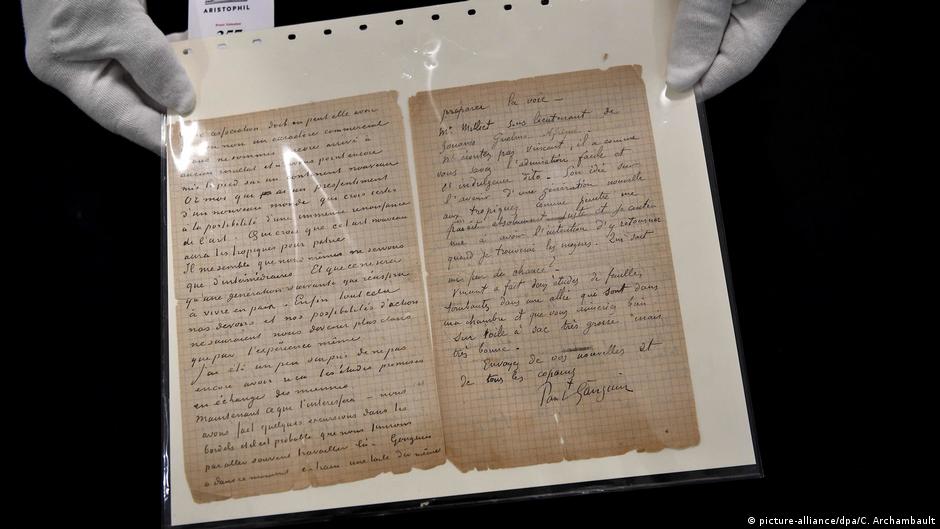 ARISTOPHIL
357
l'association doit ou peut elle avoir
ou non un caractère commercial
encore arrivé à
aucun résultat et n'avons point encore
mis le pied sur un continent nouveau
Or moi que
d'un nouveau monde que crois certes
à la possibilité d'une immense renaissance
de l'art. Que crois que cet art nouveau
aura les tropiques pour patrie
Il me semble que nous mêmes ne servons
que d'intermédiaires. Et que ce ne sera
qu'une génération suivante que réussira
à vivre en paix. Enfin tout cela
nos devoirs et nos possibilités d'action
ne sauraient nous devenir plus clairs
que par l'expérience même
J'ai été un peu surpris de ne pas
encore avoir reçu les études promises
en échange des miennes
Maintenant ce que t'interessera – nous
avons fait quelques excursions dans les
bordels et il est probable que nous finirons
par aller souvent travailler là. Gauguin
a dans ce moment en train une toile du même
préparer la voie –
Mr Milliet sous lieutenant de
Zouaves Guelma Afrique
N'écoutez pas Vincent, il a comme
vous savez l'admiration facile et
et indulgence dito. Son idée sur
l'avenir d'une génération nouvelle
aux tropiques comme peintre me
paraît absolument juste et je continue
à avoir l'intention d'y retourner
quand je trouverai les moyens. Qui sait
un peu de chance?
Vincent a fait deux études de feuilles
tombantes dans une allée que sont dans
ma chambre et que vous aimeriez bien
sur toile à sac très grosse mais
très bonne.
Envoyez de vos nouvelles et
de tous les copains
Paul Gauguin
© picture-alliance/dpa/C. Archambault